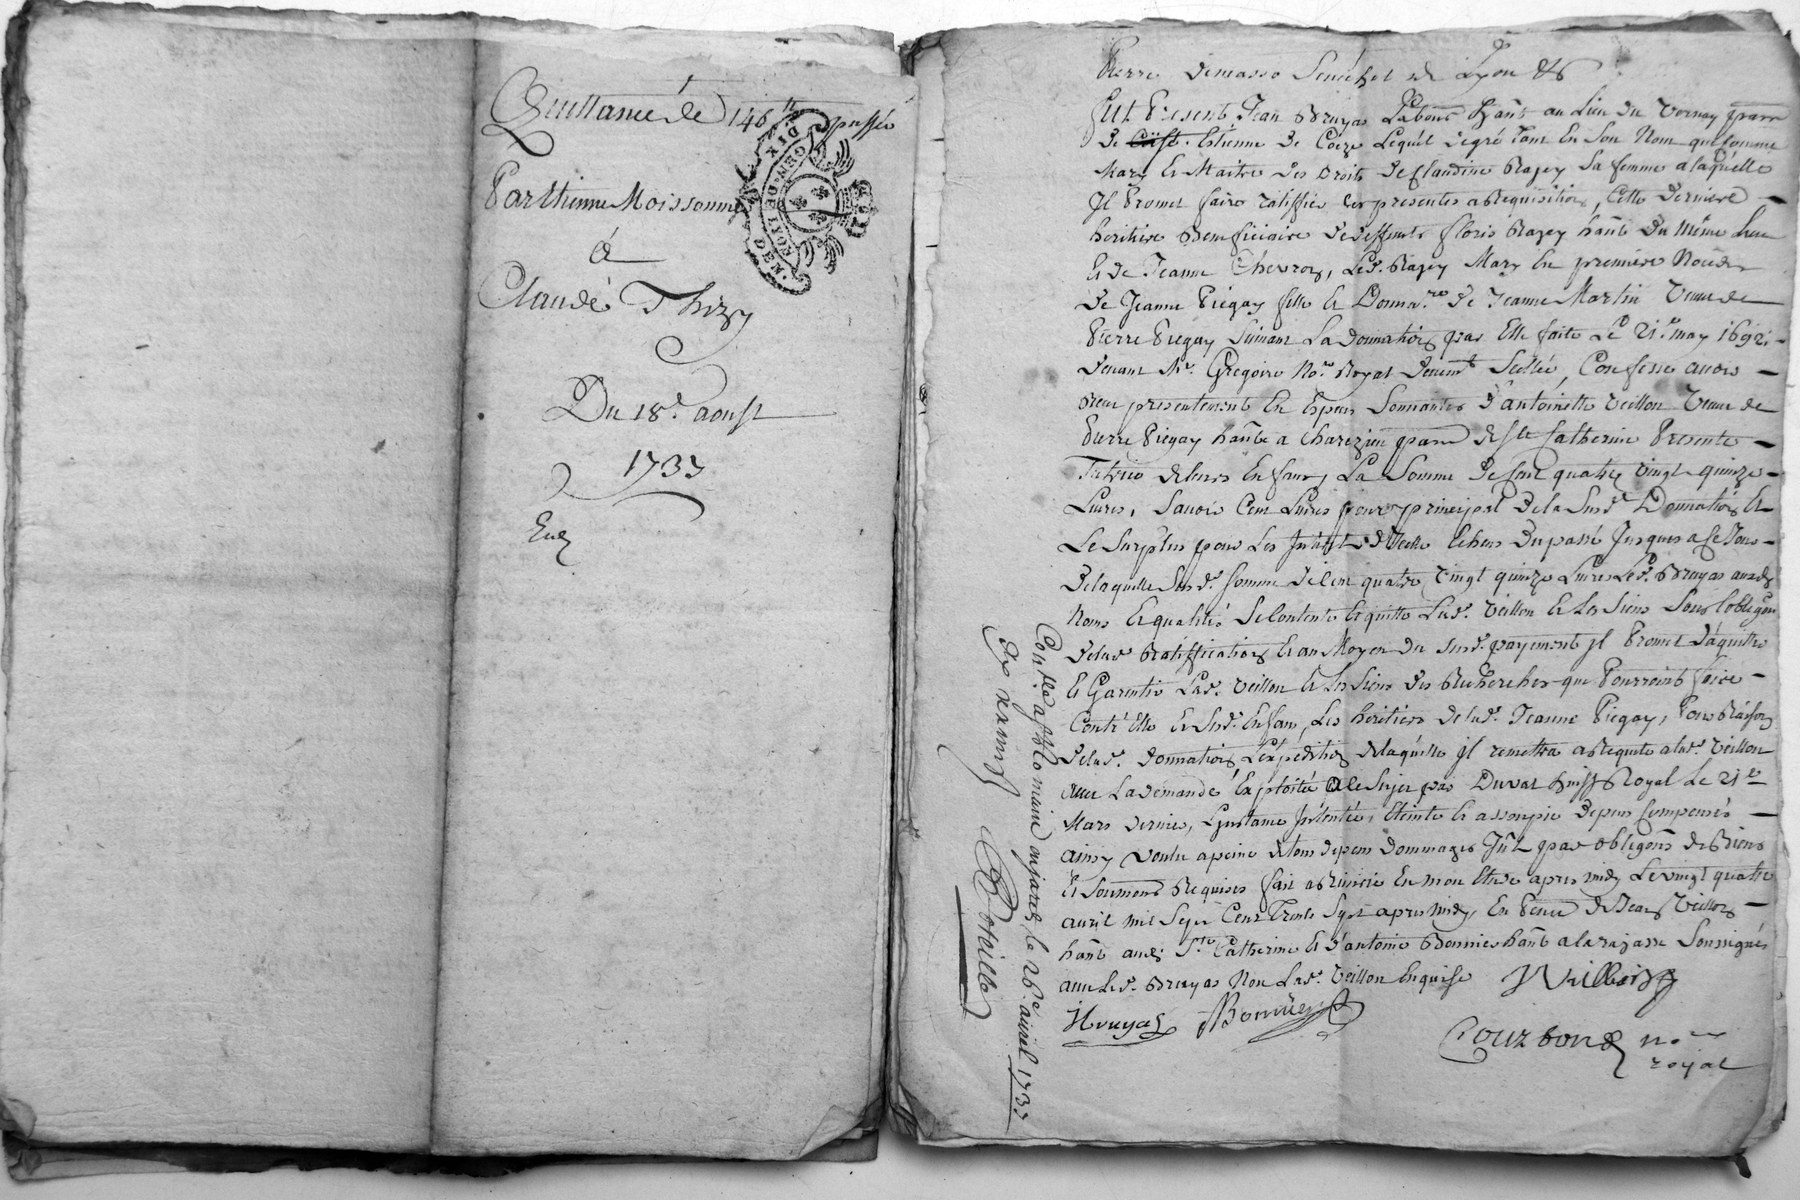 Quittance de 146 ₶ passée
Par Etienne Moissonnie
à
Claude Thizy
Du 18e. aoust
1737
Ex
GEN. ROYX DE LYON. DIX D.
Pierre Demasso Senechal de Lyon &c
Fut Present Jean Bruyas Labour hant au Lieu du Vernay parr
de St Etienne de Coize Lequel de gré tant En Son Nom que comme
Mary Et Maitre des Droits de flandine Ragey Sa femme a laquelle
Il Promet faire ratiffier ces presentes a Requisition, Cette derniere
heritiere Beneficiaire de deffunts floris Ragey hant du Même Lieu
Et de Jeanne Chevron, Led. Ragey Mary En premieres Noces
de Jeanne Piegay fille Et Donnare de Jeanne Martin Veuve de
Pierre Piegay Suivant La Donnation par Elle faite Le 21e may 1692
devant Me. Gregoire Nore Royal Deuemt Scellée, Confesse avoir
receu presentement En Especes Sonnantes d'antoinette Veillon Veuve de
Pierre Piegay hante a Charezieu parr de Ste Catherine Presente
Tutrice de leurs Enfans, La Somme de Cent quatre Vingt quinze
Livres, Savoir Cent Livres pour principal de la Susd. Donnation Et
Le Surplus pour Les Interets d'Icelle Echeus du passé Jusques a Ce Jour
de laquelle Susd. Somme de Cent quatre Vingt quinze Livres Led. Bruyas auxd
Noms Et qualités Se Contente Et quitte Lad. Veillon Et Les Siens Sous l'obligon
de lad. Ratiffication Et au Moyen du Susd. payement Il Promet d'aquitter
Et Garentir Lad. Veillon Et Les Siens des Recherches que Pourroint faire
Contr'Elle Et Sesd. Enfans, Les heritiers de lad. Jeanne Piegay, Pour Raison
de lad. Donnation, L'expedition de laquelle Il remettra a Requete a lad. Veillon
avec La demande Exploitée a Ce Sujet par Duvat huiss Royal Le 21e
Mars dernier, L'Instance Intentée, Eteinte Et assoupie depens Compensés
ainsy Voulu a peine de tous depens dommages Int par obligons de Biens
Et Soumons Requises fait a Riverie En mon Etude apres midy Le vingt quatre
avril mil Sept Cent Trente Sept apres midy, En Pence de Jean Veillon
hant aud. Ste Catherine Et d'antoine Bonnier hant a la rajasse Soussignés
avec Led. Bruyas Non Lad. Veillon Enquise JVeillon
JBruyas ABonnier
Courbon nore
royal
Conlle a St Romain en jarets le 26e. avril 1737